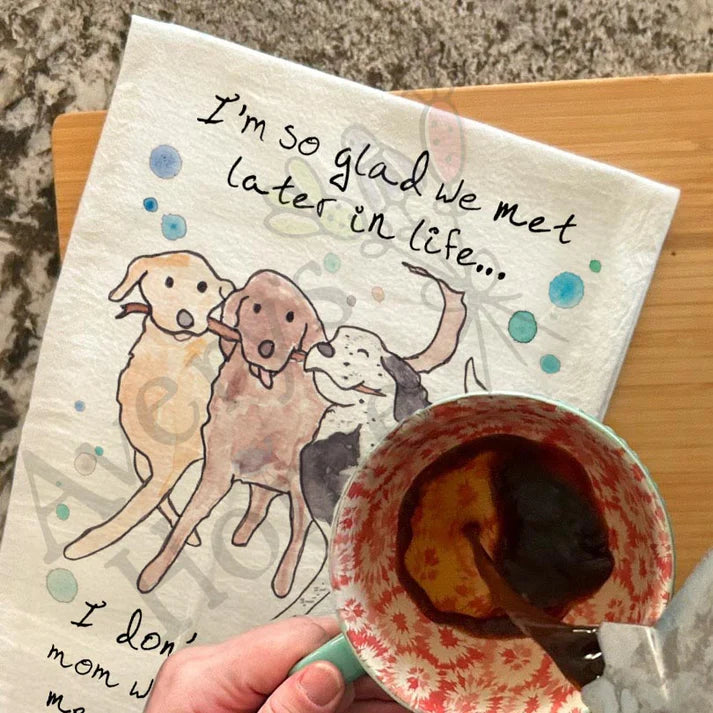 I'm so glad we met
later in life...
I don'
mom w
Avery's
Ho